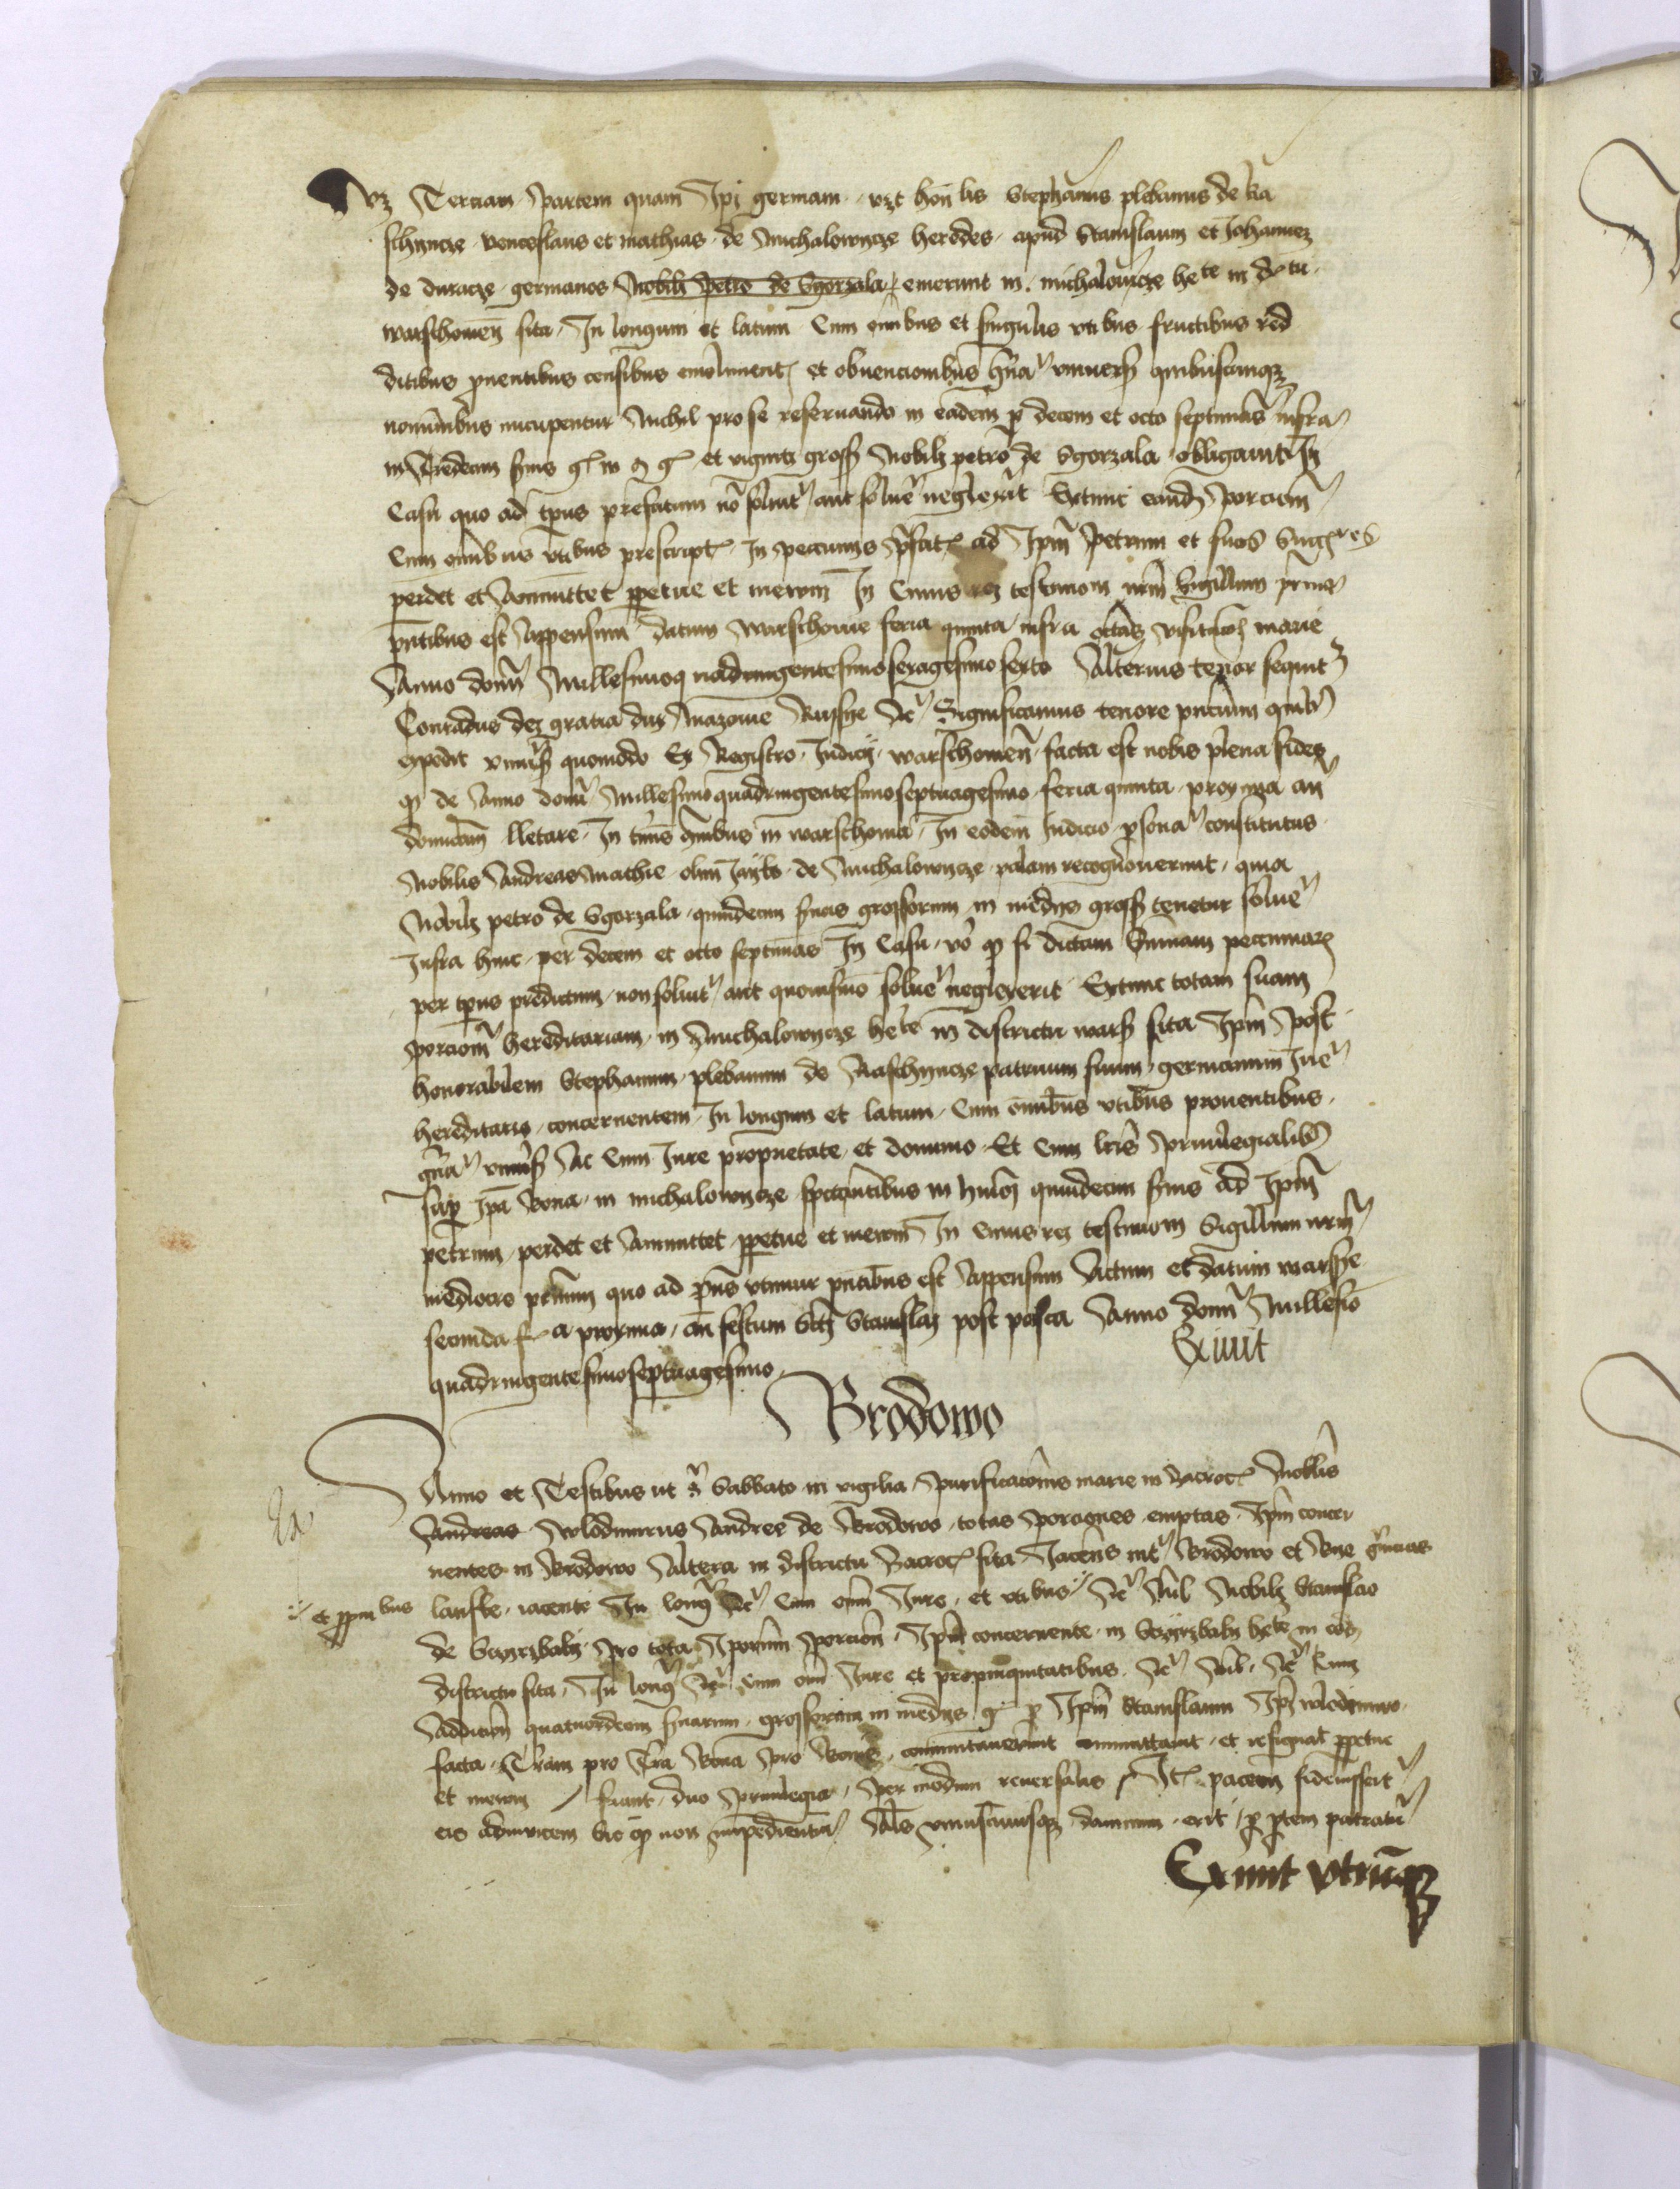 vz Terciam Partem quam Ipi germani vzt honlis Stephanus plebanus de Ra
schyncze venceslaus et mathias de Michalowycze heredes apud Stanislaum et Johannez
de duracze germanos Nobili Petro de Sgorzala emerunt in michalowicze hete in dctu
warschowien sita In longum et latum Cum omibus et singulis vtibus fructibus red
ditibus puentibus censibus emolument et obuencionibus gna vniuers quibuscumqz
nominibus nucupentur Nichil pro se reseruando in eadem p decem et octo septimas infra
in Tredecim smis g in m g et viginti gross Nobili petro de Sgorzala obligauit In
Casu quo ad tpus prefatum no soluit aut solue neglexit Extunc eand Porciom
Cum omibus vtibus prescript In pecunys pfat ad Ipm Petrum et suos Succres
perdet et Admittet ppetue et merom In Cuius rez testimom nrm Sigillum prim
pntibus est Appensum datum warschouie feria quinta infra octas visitacoz marie
Anno domi Millesimoquadringentesimosexagesimosexto Alterius tenor sequit
Conradus dez gratia dux Mazouie Russye Ac Significamus tenore pncium quib
expedit vniuss quomodo Ex Registro Judicy warschouien facta est nobis plena fides
q de Anno domi Millesimoquadringentesimoseptuagesimo feria quinta proxima an
domicam lletare In tmis gnibus in warschouia In eodem Judicio psona constitutus
Nobilis Andreas Mathie olim Jaybo de Michalowycze palam recognouerunt quia
Nobili petro de Sgorzala quindecim smis grossorum in medys gross tenetur solue
Infra hinc per decem et octo septimas In Casu vo q si dictam Summam pecuniar
per tpus predictum non soluit aut quouismo solue neglexerit Extunc totam suam
porciom hereditariam in Michalowycze hete in districtu wars sita Ipm Post
honorabilem Stephanum plebanum de Raschyncze patruum suum germanum Jue
hereditario concernentem In longum et latum Cum omibus vtibus prouentibus
gna vniuss Ac Cum Jure proprietate et dominio Et Cum lris Priuilegialib
sup Ipa Bona in michalowycze spectantibus in huiq quindecim smis ad Ipm
petrum perdet et Amittet ppetue et merom In cuius rez testimom Sigillum nrm
mediocre pncium quo ad pns vtimur pntibus est Appensum Actum et datum warssye
secunda fr a proxima an festum Scti Stanislaz post pasca Anno domi Millesio
quadringentesimoseptuagesimo
Exiuit
Brodowo
Anno et Testibus ut s Sabbato in vigilia Purificacois marie in Zacrocz Noblis
Andreas Wlodimirus Andree de Brodowo totas Porciones emptas Ipm concer
nentes in Brodowo Altera in districtu Zacrocz sita Jacens int Brodowo et
et ppm bus lanske iacente In long Ac Cum omi Jure et vtibus Ac Nil Nobili Stanislao
de Sczyrzbaly Pro tota Iporum Porcion Ipm concernente in Sczyrzbaly hete in eod
districtu sita In long Ac Cum omi Jure et propinquitatibus Ac Nil Ac Cum
Addicion quatuordecim smarum grossorum in medys g p Ipm Stanislaum Ipi wlodimiro
facta Tram pro Tra Bona Pro Bonis commutauerunt et resignat ppetue
et merom fiant duo Priuilegia Per modum reuersalis It pacem fideiussert
eis adinuicem Sic q non impedientur Als vniuscuiusqz damnum erit p ptem patratu
Exiuit vtrumqz